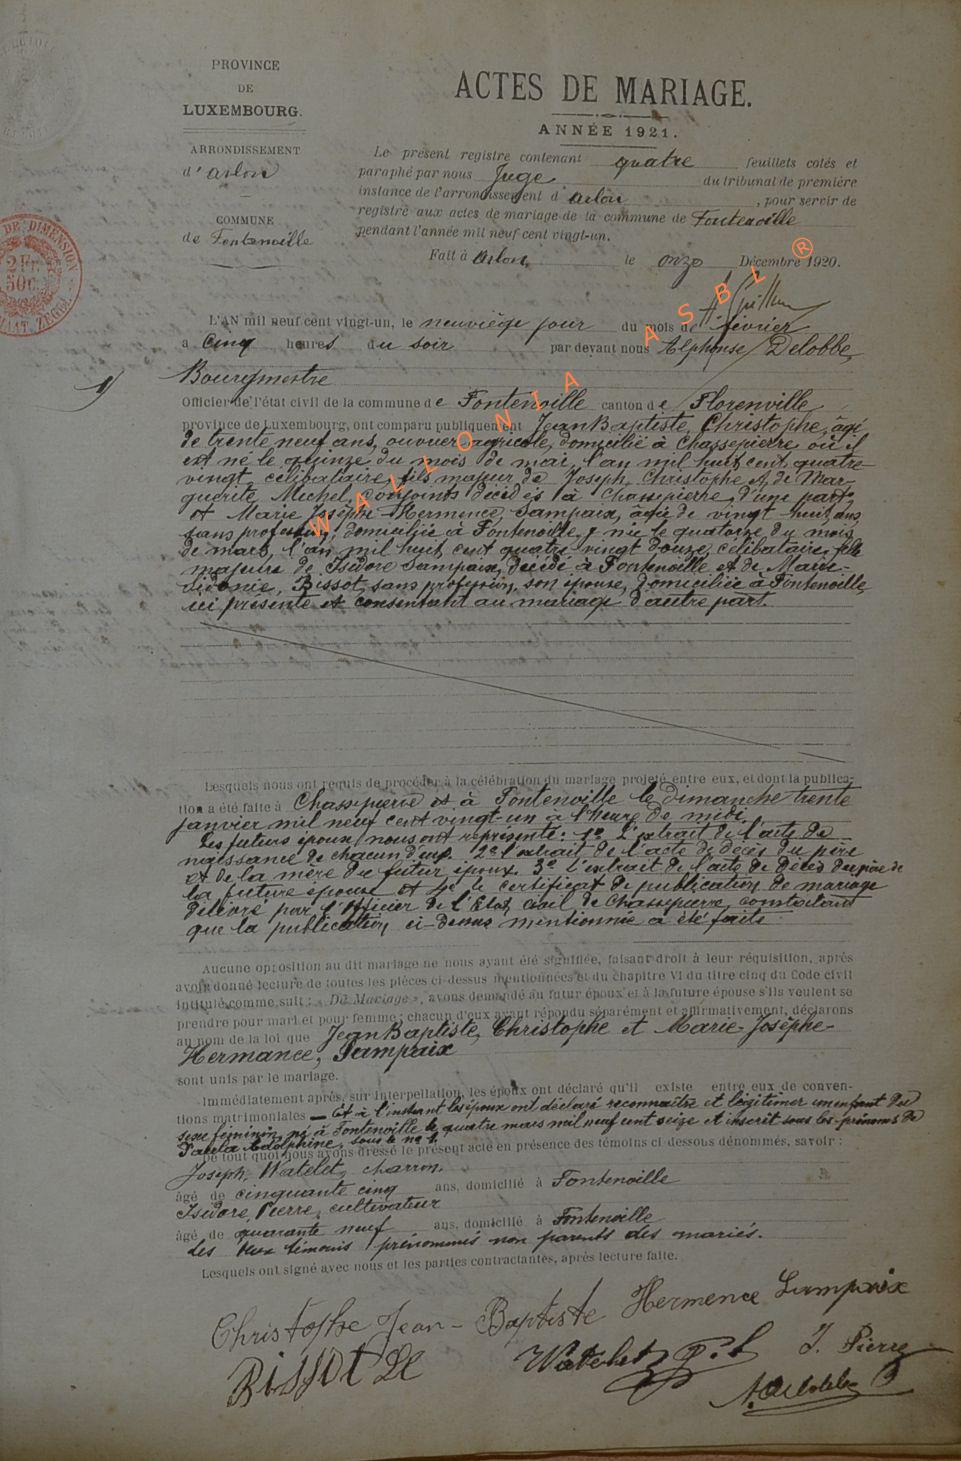 PROVINCE
DE
LUXEMBOURG.
ARRONDISSEMENT
d'Arlon
COMMUNE
de Fontenoille
DE DIMENSION
2 Fr.
50c.
ZEGEL
ACTES DE MARIAGE.
ANNÉE 1921.
Le présent registre contenant quatre feuillets cotés et
paraphé par nous Juge du tribunal de première
instance de l'arrondissement d'Arlon, pour servir de
registre aux actes de mariage de la commune de Fontenoille
pendant l'année mil neuf cent vingt-un.
Fait à Arlon, le onze Décembre 1920.
WALLONIA ASBL ®
L'AN mil neuf cent vingt-un, le neuviège jour du mois de février
à cinq heures du soir par devant nous Alphonse Delobbe,
1/ Bourgmestre
Officier de l'état civil de la commune de Fontenoille canton de Florenville
province de Luxembourg, ont comparu publiquement Jean Baptiste, Christophe, âgé
de trente neuf ans, ouvrier agricole, domicilié à Chassepierre où il
est né le quinze du mois de mai, l'an mil huit cent quatre
vingt, célibataire, fils majeur de Joseph, Christophe et de Mar-
guerite Michel, conjoints décédés à Chassepierre, d'une part
et Marie Josèphe Hermence, Sampaix, âgée de vingt-huit ans,
sans profession, domiciliée à Fontenoille, y née le quatorze du mois
de mars, l'an mil huit cent quatre vingt douze, célibataire, fille
majeure de Isidore Sampaix, décédé à Fontenoille et de Marie-
Sidonie, Bissot, sans profession, son épouse, domiciliée à Fontenoille,
ici présente et consentant au mariage d'autre part.
Lesquels nous ont requis de procéder à la célébration du mariage projeté entre eux, et dont la publica-
tion a été faite à Chassepierre et à Fontenoille le dimanche trente
janvier mil neuf cent vingt-un à l'heure de midi.
Les futurs époux nous ont représenté: 1º L'extrait de l'acte de
naissance de chacun d'eux. 2º l'extrait de l'acte de décès du père
et de la mère du futur époux. 3º L'extrait de l'acte de décès du père de
la future épouse et 4º le certificat de publication de mariage
délivré par l'Officier de l'Etat civil de Chassepierre, constatant
que la publication ci-dessus mentionnée a été faite.
Aucune opposition au dit mariage ne nous ayant été signifiée, faisant droit à leur réquisition, après
avoir donné lecture de toutes les pièces ci-dessus mentionnées et du chapitre VI du titre cinq du Code civil
intitulé comme suit : « Du Mariage », avons demandé au futur époux et à la future épouse s'ils veulent se
prendre pour mari et pour femme ; chacun d'eux ayant répondu séparément et affirmativement, déclarons
au nom de la loi que Jean Baptiste, Christophe et Marie-Josèphe-
Hermance, Sampaix
sont unis par le mariage.
Immédiatement après, sur interpellation, les époux ont déclaré qu'il existe entre eux de conven-
tions matrimoniales — Et à l'instant les époux ont déclaré reconnaître et légitimer un enfant du
sexe féminin, né à Fontenoille le quatre mars mil neuf cent seize et inscrit sous les prénoms de
Adolphine, sous le nº 1.
De tout quoi nous avons dressé le présent acte en présence des témoins ci-dessous dénommés, savoir :
Joseph, Watelet, charron,
âgé de cinquante cinq ans, domicilié à Fontenoille
Isidore, Pierre, cultivateur
âgé de quarante neuf ans, domicilié à Fontenoille
Les deux témoins prénommés non parents des mariés.
Lesquels ont signé avec nous et les parties contractantes, après lecture faite.
Christophe Jean-Baptiste Hermence Sampaix
BISSOT Watelet J. Pierre
A. Delobbe